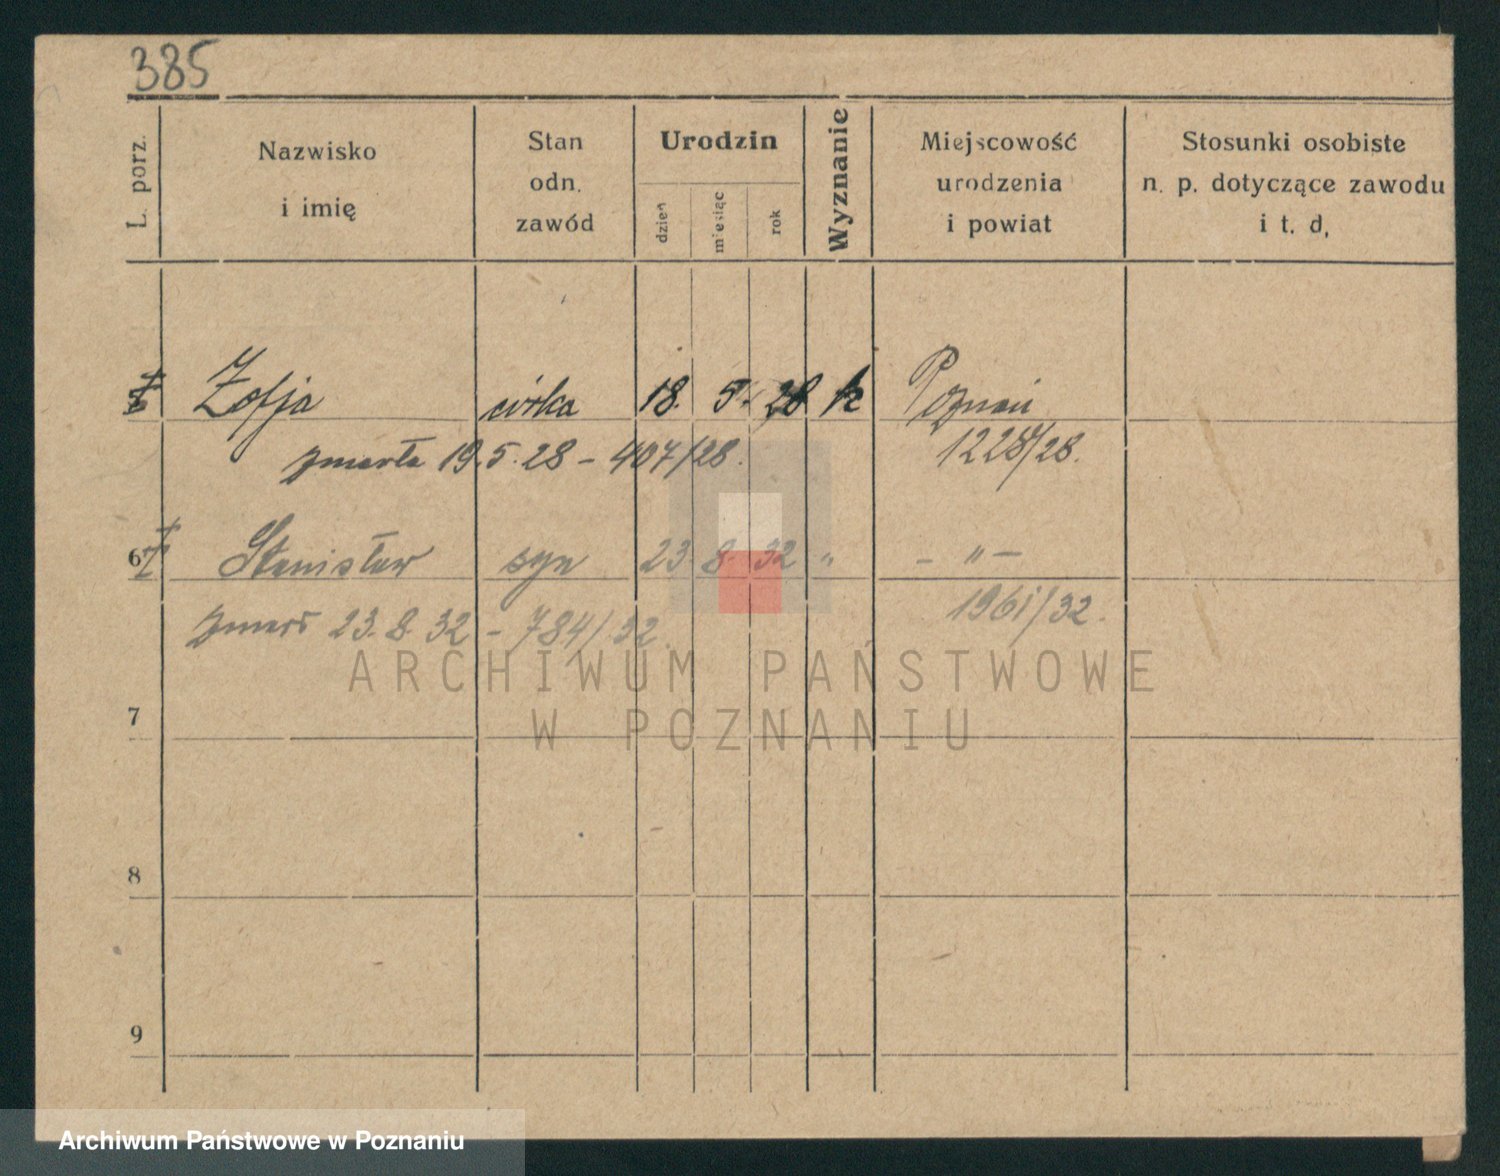 385
L. porz.
Nazwisko
i imię
Stan
odn.
zawód
Urodzin
dzień
miesiąc
rok
Wyznanie
Miejscowość
urodzenia
i powiat
Stosunki osobiste
n. p. dotyczące zawodu
i t. d.
5 Zofja córka 18. 5. 28 k Poznań
zmarła 19.5.28 - 407/28. 1228/28.
6 Stanisław syn 23. 8. 32 " - " -
zmarł 23.8.32 - 784/32. 1961/32.
ARCHIWUM PAŃSTWOWE
W POZNANIU
7
8
9
Archiwum Państwowe w Poznaniu